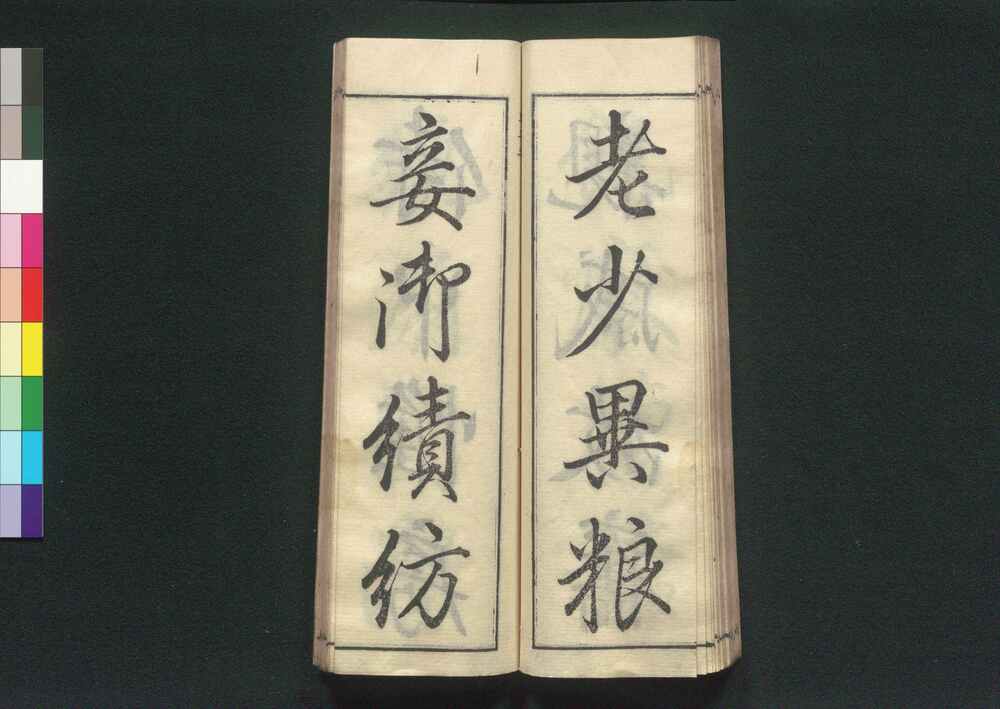 老少異粮
妾御績紡